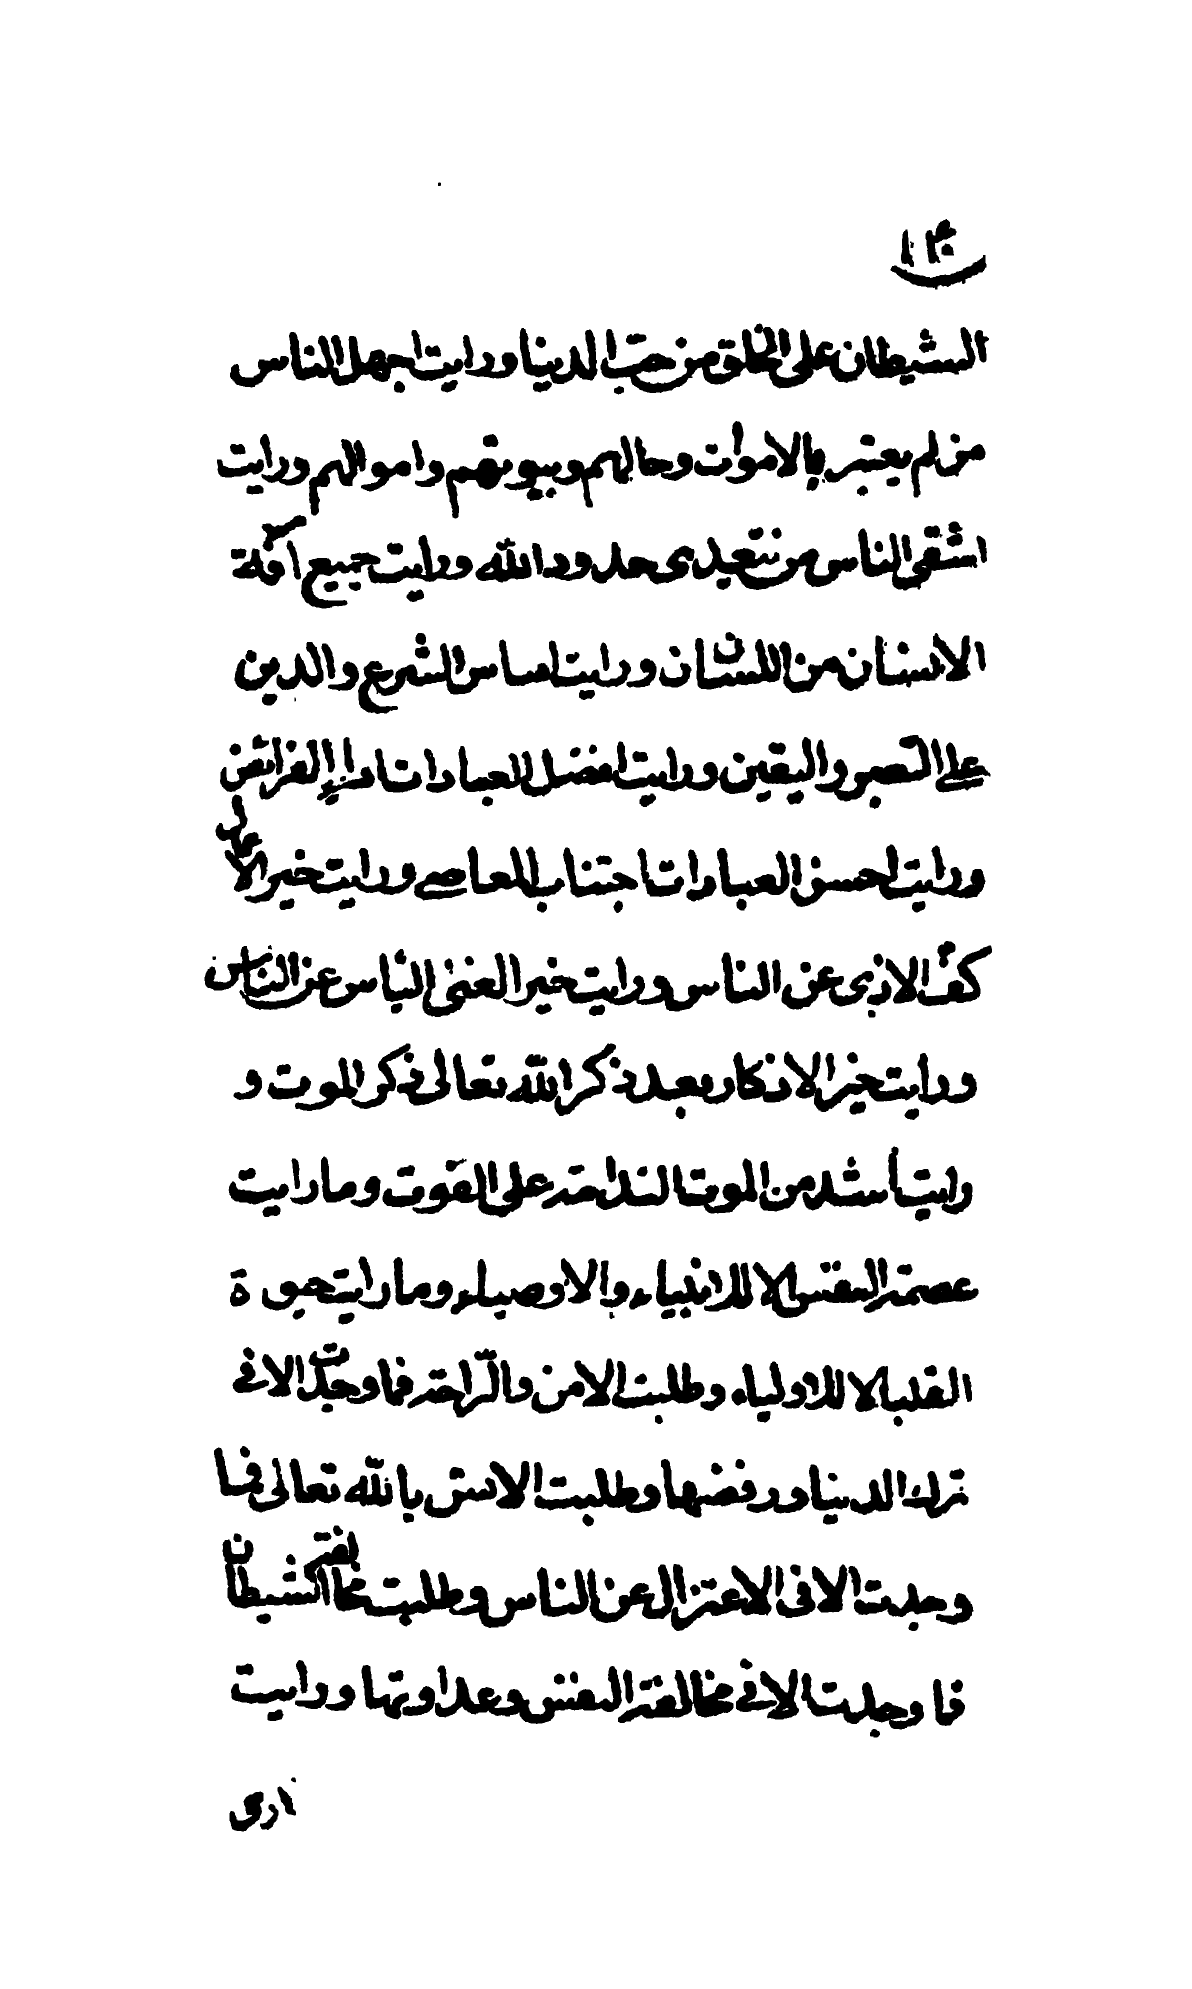 الشيطان على الخلق من حب الدنيا ورايت اجهل الناس
من لم يعتبر بالاموات وحالهم وبيوتهم واموالهم ورايت
اشقى الناس من يتعدى حدود الله ورايت جميع آفة
الانسان من اللسان ورايت اساس الشرع والدين
على الصبر واليقين ورايت افضل العبادات اداء الفرائض
ورايت احسن العبادات اجتناب المعاصي ورايت خير الاعمال
كف الاذى عن الناس ورايت خير الغنى الياس عن الناس
ورايت خير الاذكار بعد ذكر الله تعالى ذكر الموت و
رايت أشد من الموت الندامة على الفوت وما رايت
عصمة النفس الا للانبياء والاوصياء وما رايت حيوة
القلب الا للاولياء وطلبت الامن والراحة فما وجدت الا فى
ترك الدنيا ورفضها وطلبت الانس بالله تعالى فما
وجدت الا فى الاعتزال عن الناس وطلبت مخالفة الشيطان
فما وجدت الا فى مخالفة النفس وعداوتها ورايت